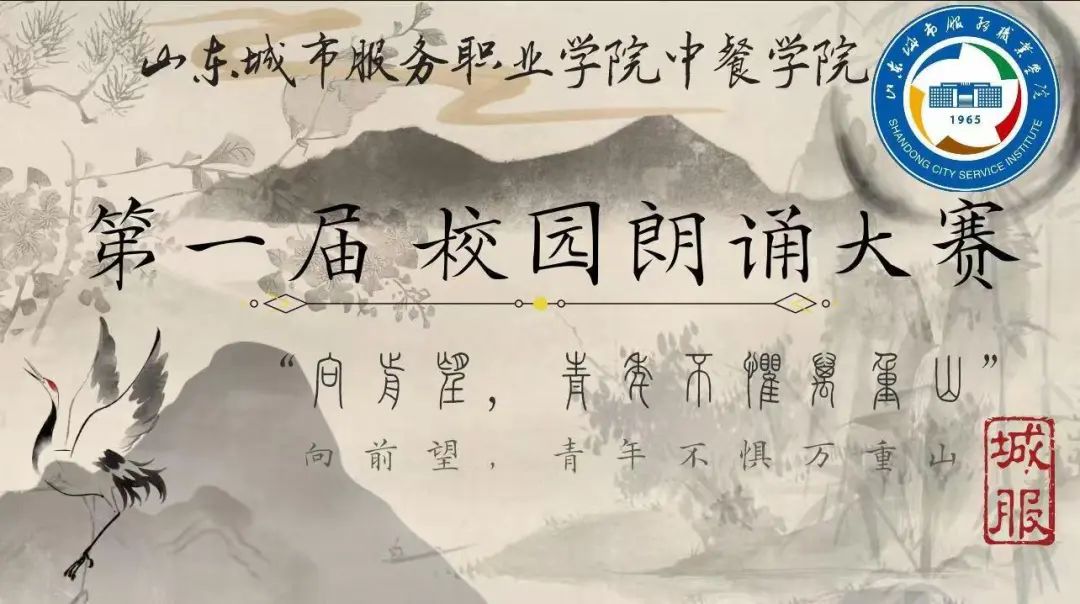 山东城市服务职业学院中餐学院
山东城市服务职业学院
1965
SHANDONG CITY SERVICE INSTITUTE
第一届 校园朗诵大赛
“向前望，青年不惧万重山”
向前望，青年不惧万重山
城服